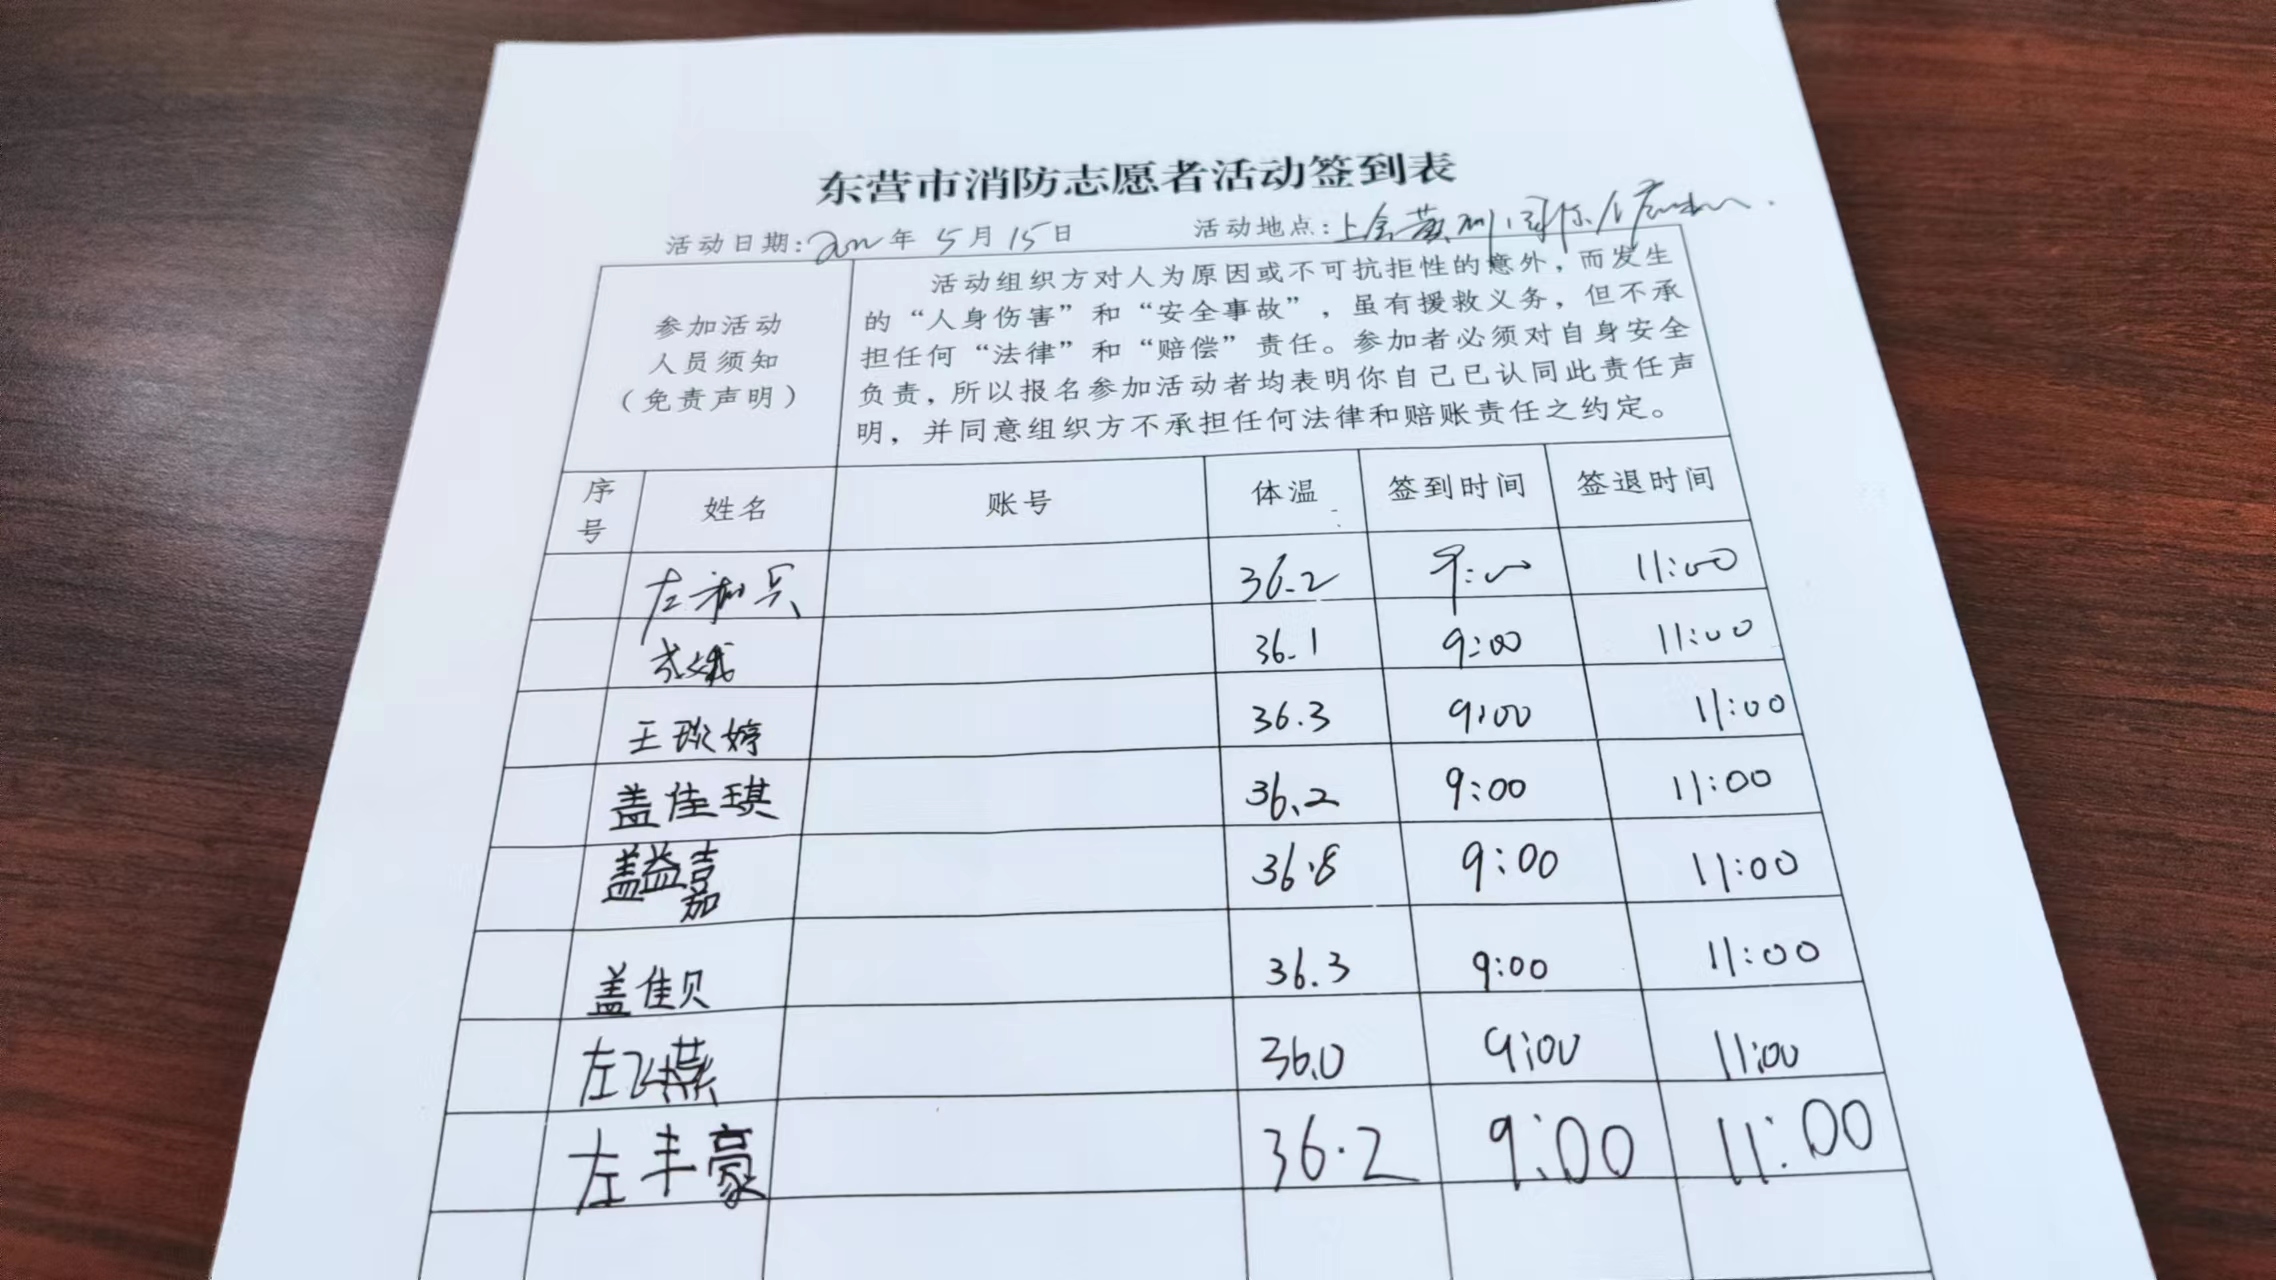 东营市消防志愿者活动签到表
活动日期:2022年5月15日 活动地点:
参加活动
人员须知
（免责声明）
活动组织方对人为原因或不可抗拒性的意外，而发生
的“人身伤害”和“安全事故”，虽有援救义务，但不承
担任何“法律”和“赔偿”责任。参加者必须对自身安全
负责，所以报名参加活动者均表明你自己已认同此责任声
明，并同意组织方不承担任何法律和赔账责任之约定。
序号 姓名 账号 体温 签到时间 签退时间
36.2 9:00 11:00
36.1 9:00 11:00
王琰婷 36.3 9:00 11:00
盖佳琪 36.2 9:00 11:00
盖益嘉 36.8 9:00 11:00
盖佳贝 36.3 9:00 11:00
左飞燕 36.0 9:00 11:00
左丰豪 36.2 9:00 11:00